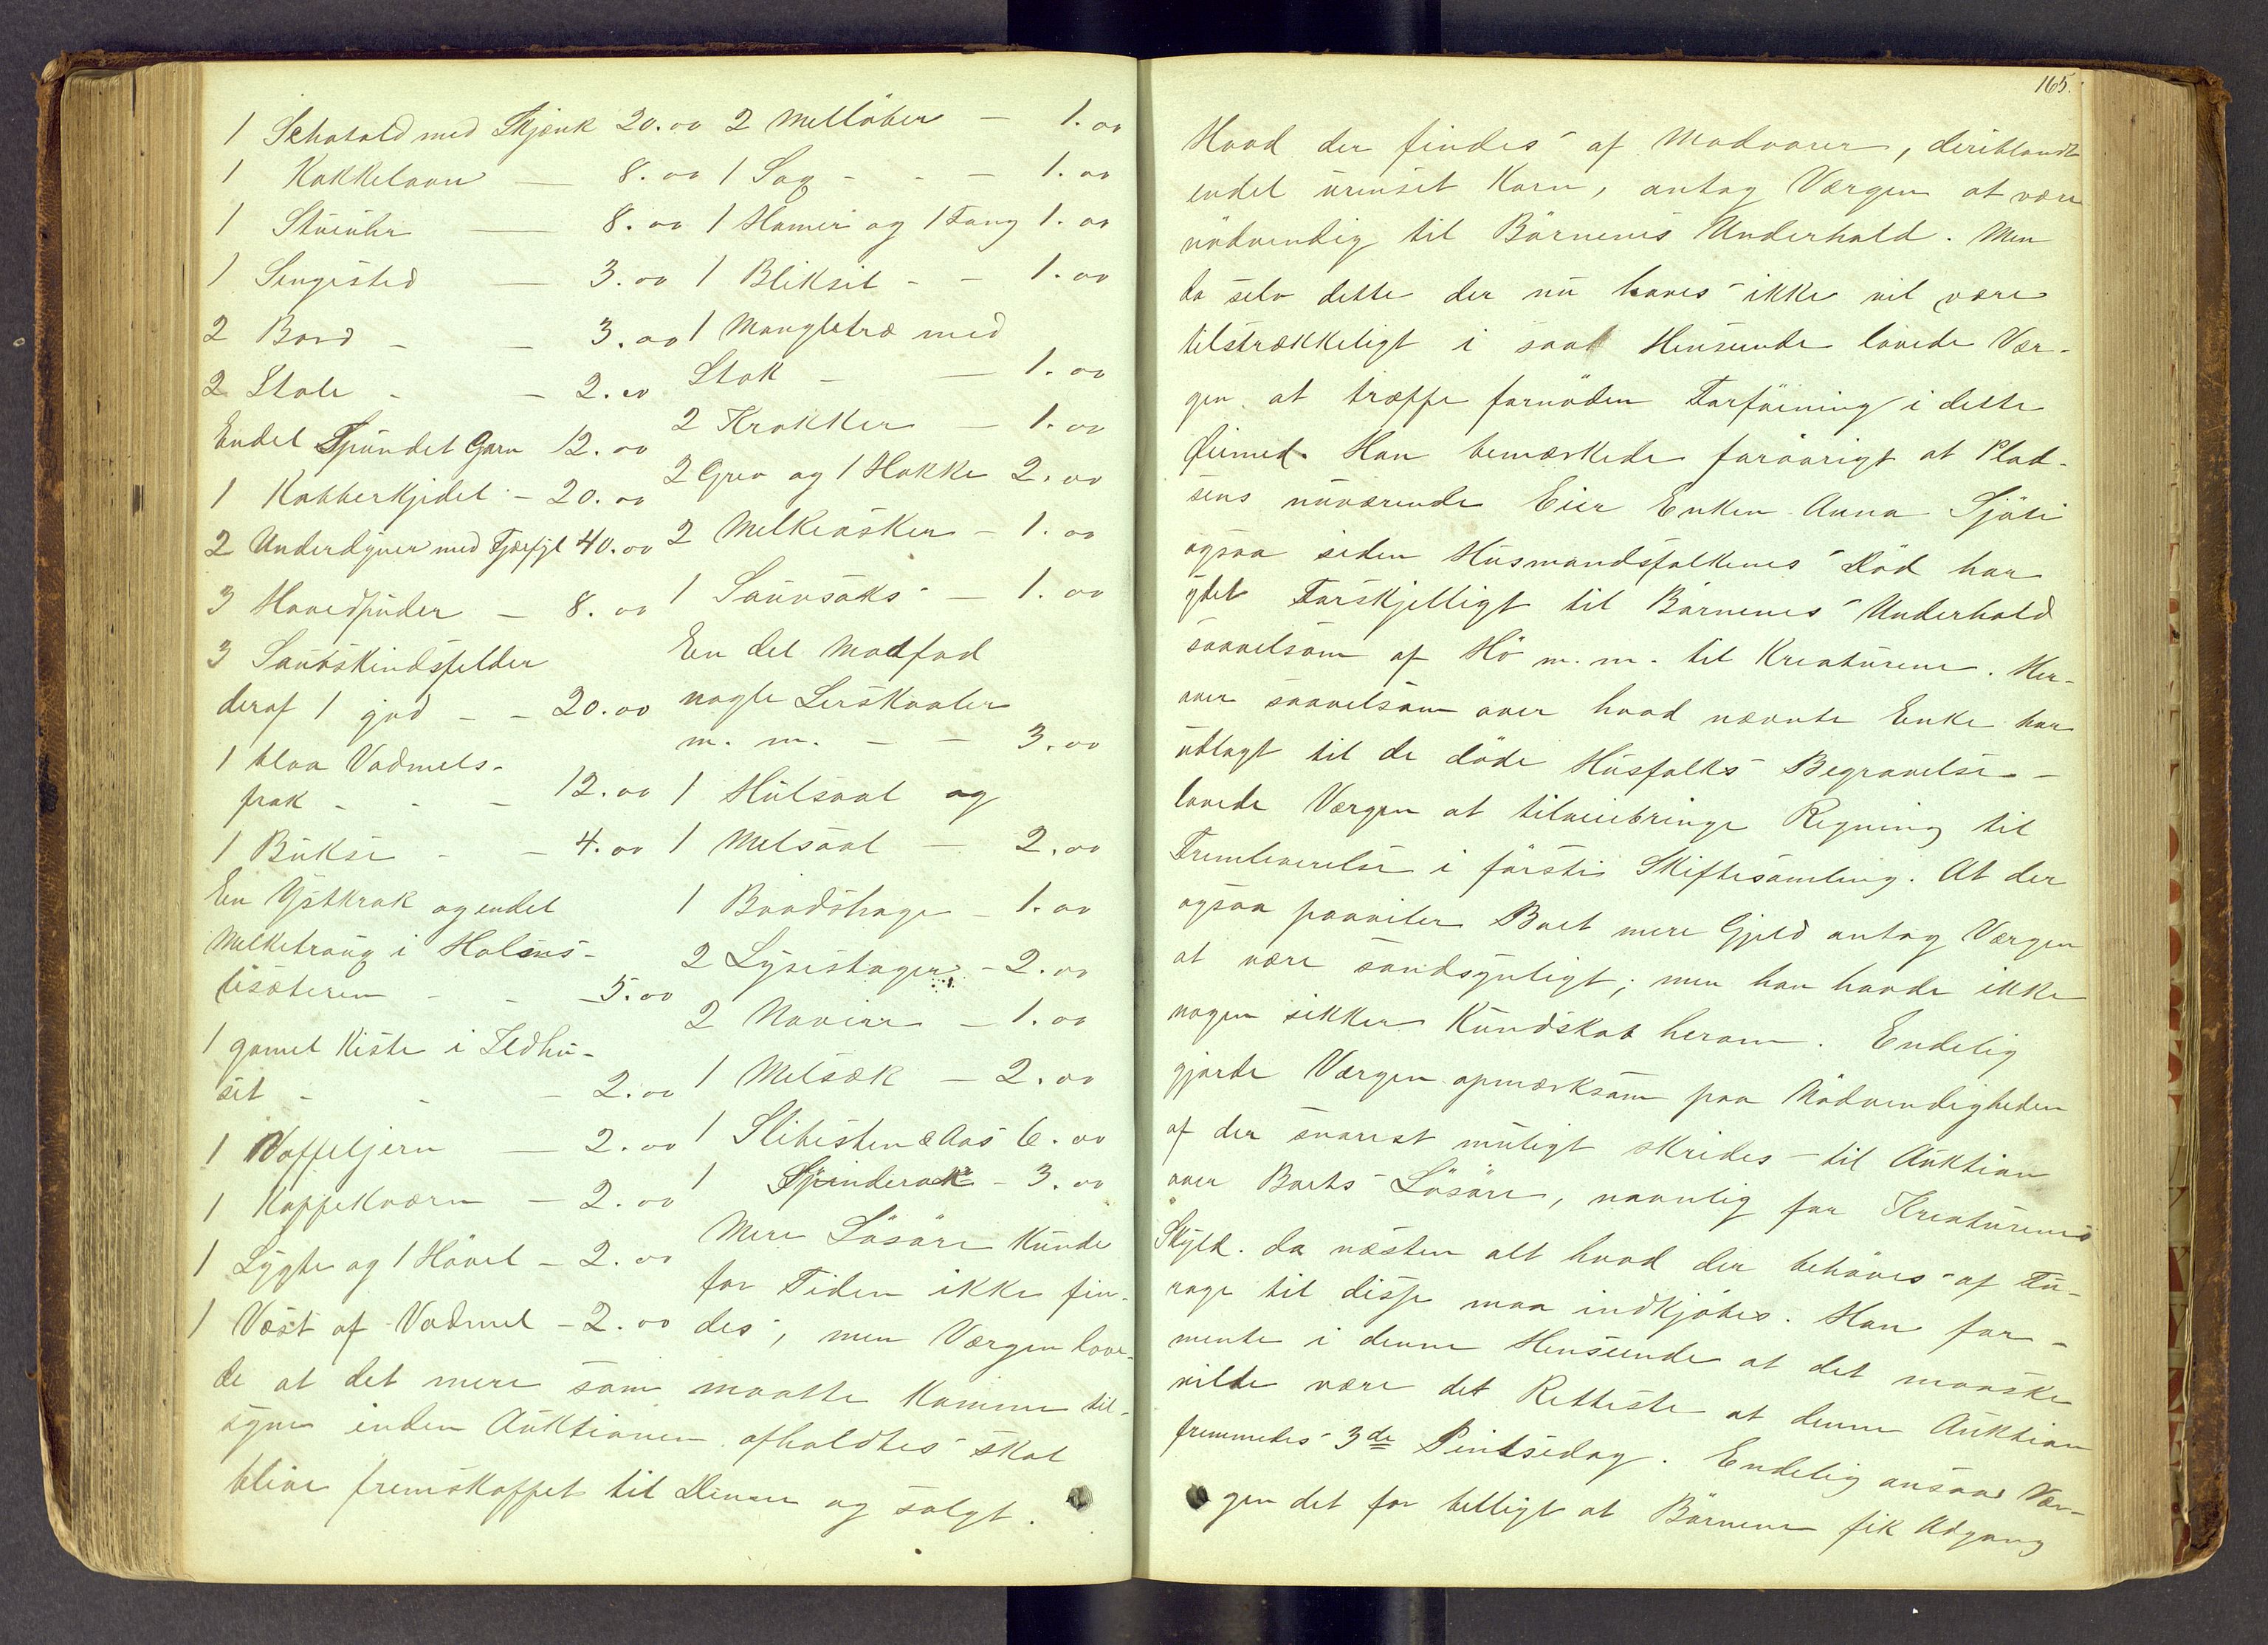 1 Schatold med Skjænk 20.00
1 Kakkelavn — 8.00
1 Stueuhr — 8.00
1 Sengested — 3.00
2 Bord - - 3.00
2 Stole - - 2.00
Endel Spundet Garn 12.00
1 Kobberkjedel - 20.00
2 Underdyner med Fjær 40.00
3 Hovedpuder - 8.00
3 Saueskindsfelder
deraf 1 god - - 20.00
1 blaa Vadmels-
frak - - - 12.00
1 Bukse - - 4.00
En Ystkrak og endel
Melketraug i
- - 5.00
1 gamel Kiste i Ildhu-
set - - - 2.00
1 Vaffeljern — 2.00
1 Kaffekværn - 2.00
1 Lygte og 1 Hövel - 2.00
1 Væst af Vadmel - 2.00
2 Melløber - 1.00
1 Sag - - - 1.00
1 Hamer og 1 Tang 1.00
1 Bliksil - - 1.00
1 Mangletræ med
Stok - — 1.00
2 Krakker — 1.00
2 Grev og 1 Hakke 2.00
2 Melkeasker - 1.00
1 Sauesaks - 1.00
En del Madfad
nogle Lerskaaler
m. m. - - 3.00
1 Hulsaal og
1 Melsaal - 2.00
1 Brödhage - 1.00
2 Lysestager - 2.00
2 Navirer - 1.00
1 Melsæk - 2.00
1 Slibesten & Aas 6.00
1 Spinderok - 3.00
Mere Løsøre kunde
for Tiden ikke fin-
des, men Værgen love-
de at det mere som maatte komme til-
syne inden Auktionen afholdtes skal
blive fremskaffet til denne og solgt.
165.
Hvad der findes af Madvarer, deriblandt
endel urenset Korn, antog Værgen at være
nødvendig til Børnenes Underhold. Men
da selv dette der nu haves ikke vil være
tilstrækkeligt i saat Henseende lovede Vær-
gen at træffe fornøden Forføining i dette
Øiemed. Han bemærkede forøvrigt at Plad-
sens nuværende Eier Enken Anna Sjøli
ogsaa siden Husmandsfolkenes Død har
ydet Forskjelligt til Børnenes Underhold
saavelsom af Hø m. m. til Kreaturene. Her-
over saavelsom over hvad nævnte Enke har
udlagt til de døde Husfolks Begravelse -
lovede Værgen at tilveiebringe Regning til
Fremleverelse i første Skiftesamling. At der
ogsaa paahviler Boet mere Gjeld antog Værgen
at være sandsynligt; men han havde ikke
nogen sikker Kundskab herom. Endelig
gjorde Værgen opmærksom paa Nødvendigheden
af der snarest muligt skrides til Auktion
over Boets Løsøre, navnlig for Kreaturenes
Skyld. da næsten alt hvad der behøves af Fu-
rage til disse maa indkjøbes. Han for-
mente i denne Henseende at det maaske
vilde være det Retteste at denne Auktion
fremmedes 3de Pintsedag. Endelig ansaa Vær-
gen det for billigt at Børnene fik Adgang